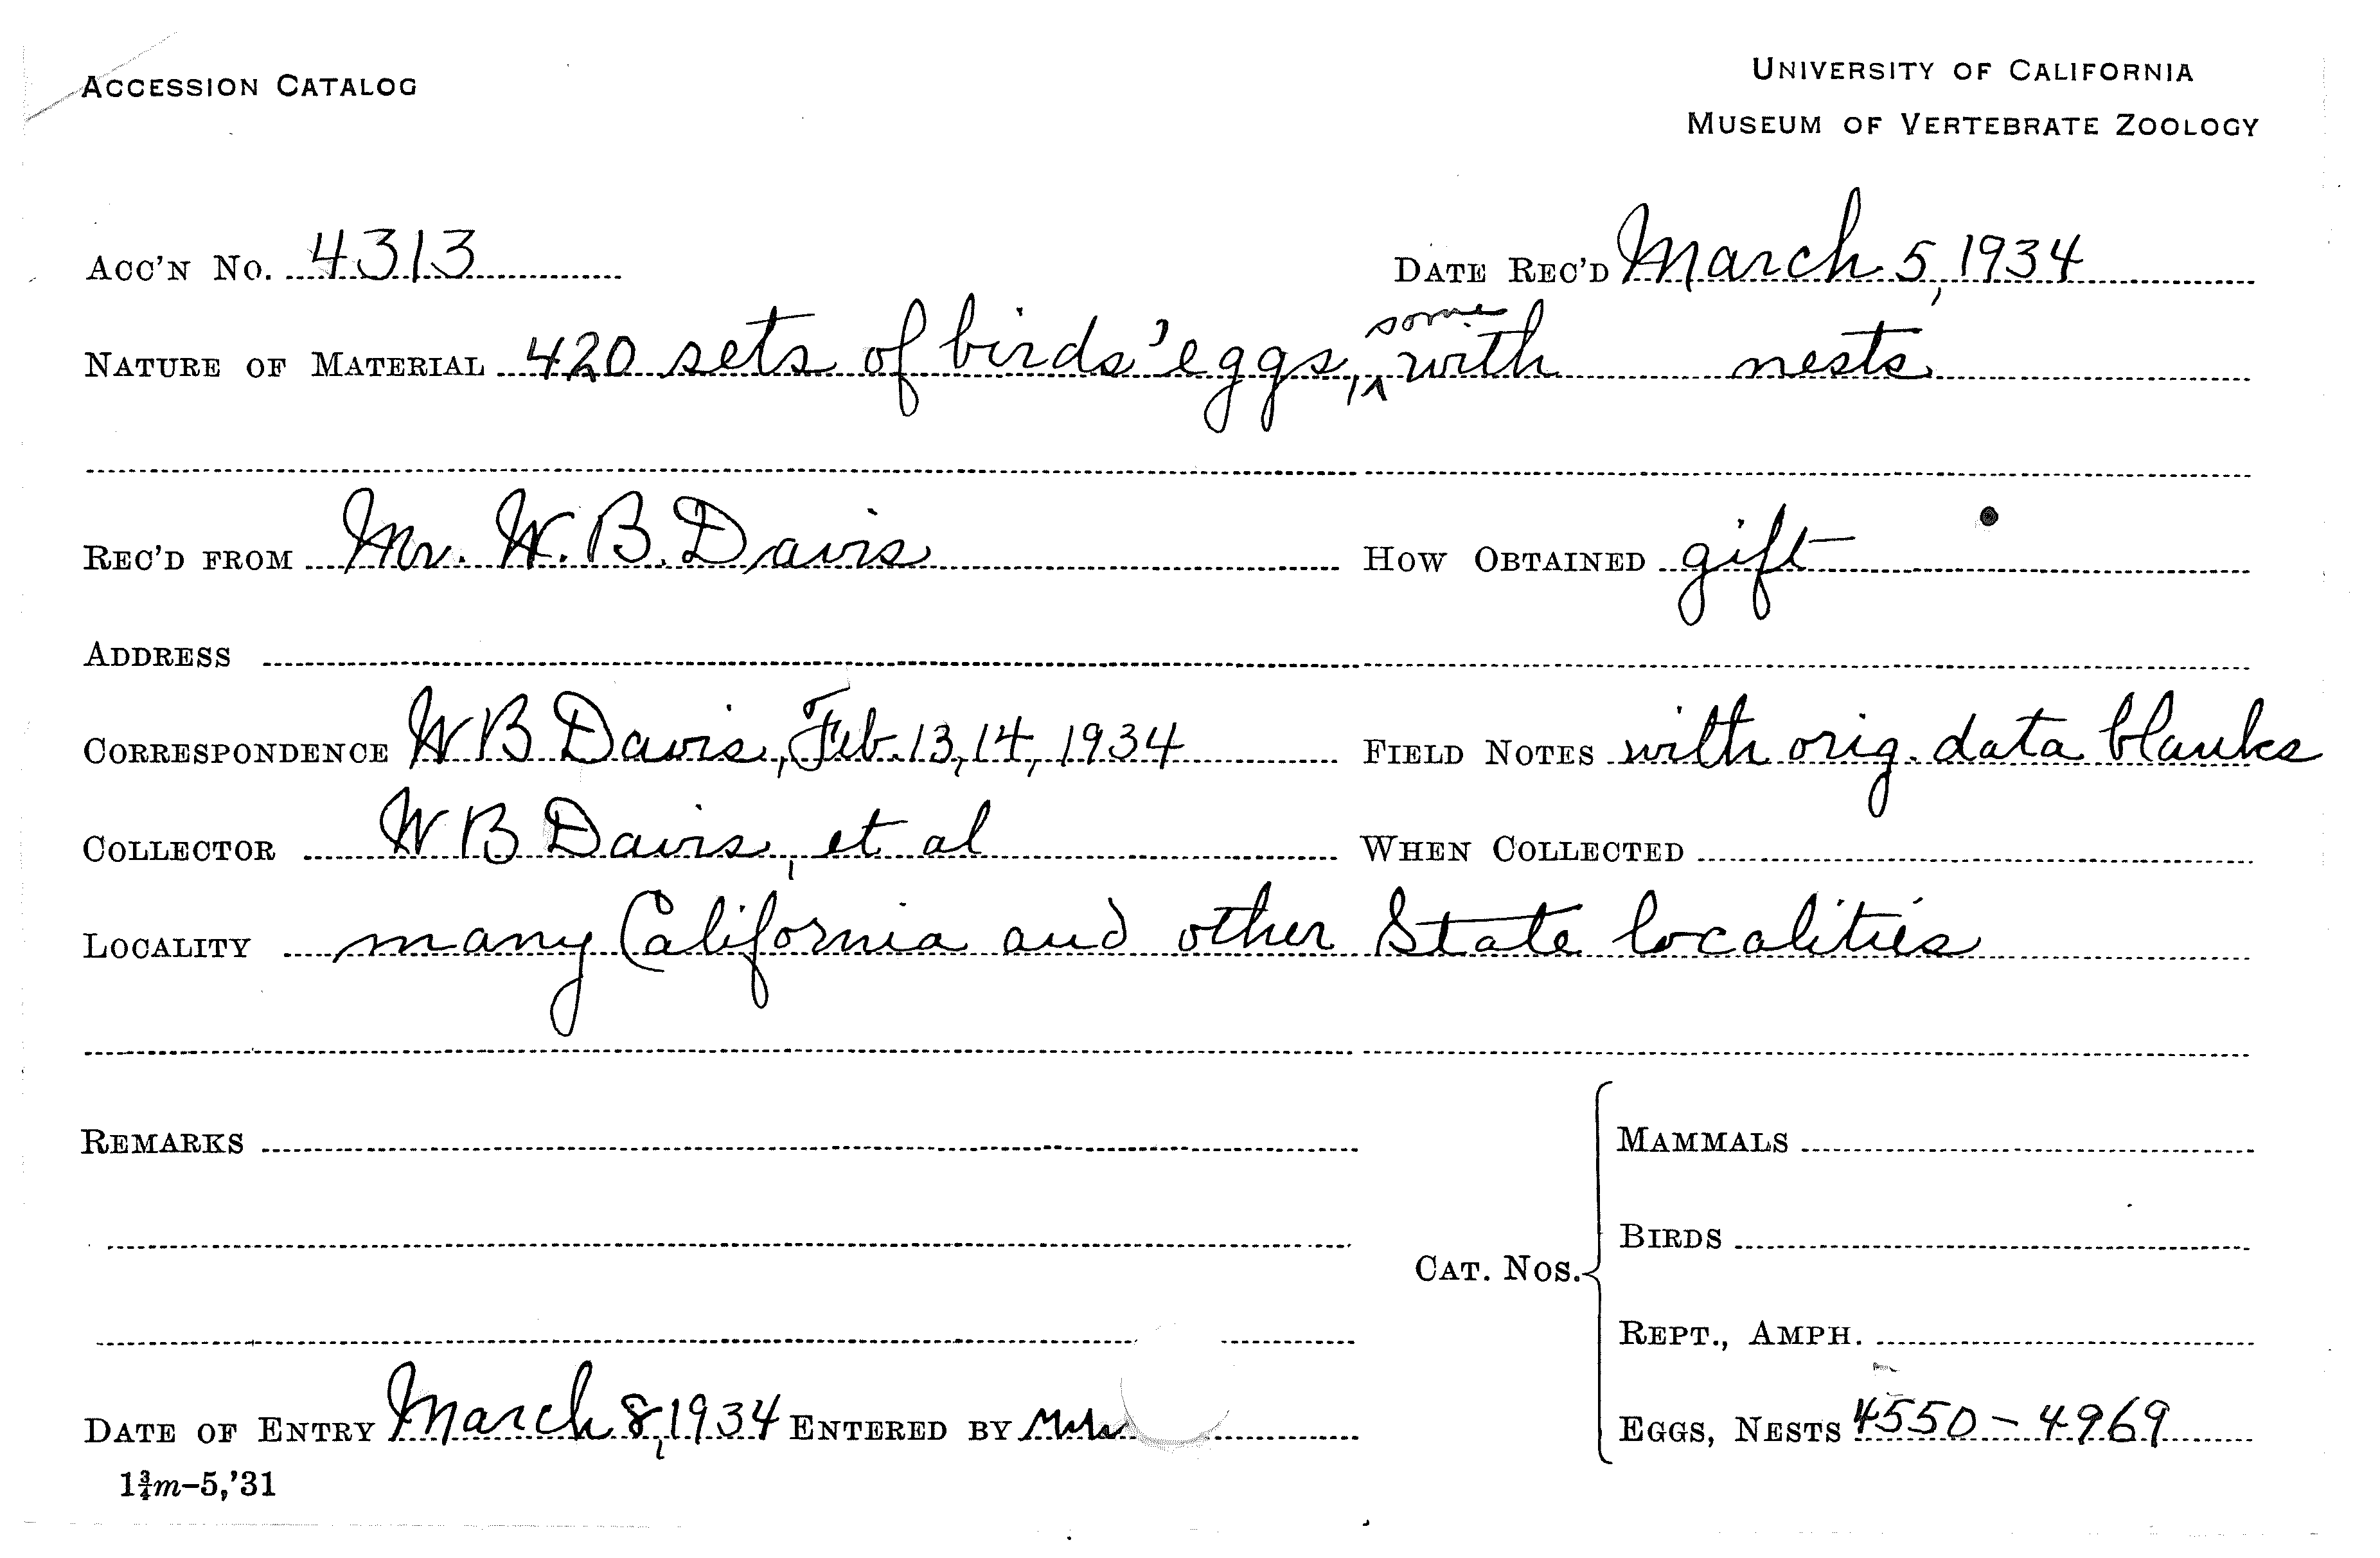 ACCESSION CATALOG
UNIVERSITY OF CALIFORNIA
MUSEUM OF VERTEBRATE ZOOLOGY
ACC'N NO. 4313 DATE REC'D March 5, 1934
NATURE OF MATERIAL 420 sets of birds' eggs, some with nests
REC'D FROM Mr. W. B. Davis HOW OBTAINED gift
ADDRESS
CORRESPONDENCE W B Davis, Feb. 13, 14, 1934 FIELD NOTES with orig. data blanks
COLLECTOR W B Davis, et al WHEN COLLECTED
LOCALITY many California and other State localities
REMARKS
CAT. NOS.
MAMMALS
BIRDS
REPT., AMPH.
EGGS, NESTS 4550 – 4969
DATE OF ENTRY March 8, 1934 ENTERED BY
1¾m–5,'31